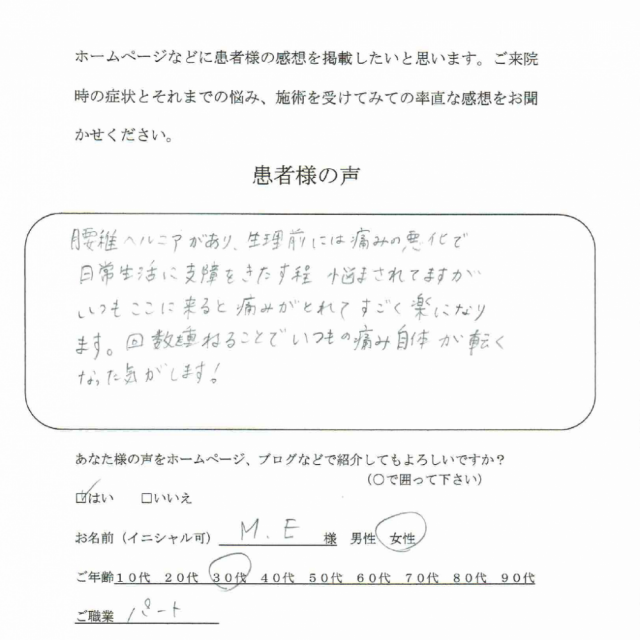 ホームページなどに患者様の感想を掲載したいと思います。ご来院
時の症状とそれまでの悩み、施術を受けてみての率直な感想をお聞
かせください。
患者様の声
腰椎ヘルニアがあり、生理前には痛みの悪化で
日常生活に支障をきたす程 悩まされてますが
いつもここに来ると痛みがとれてすごく楽になり
ます。回数重ねることでいつもの痛み自体が軽く
なった気がします!
あなた様の声をホームページ、ブログなどで紹介してもよろしいですか?
(○で囲って下さい)
☑はい □いいえ
お名前(イニシャル可) M.E 様 男性 女性
ご年齢 10代 20代 30代 40代 50代 60代 70代 80代 90代
ご職業 パート